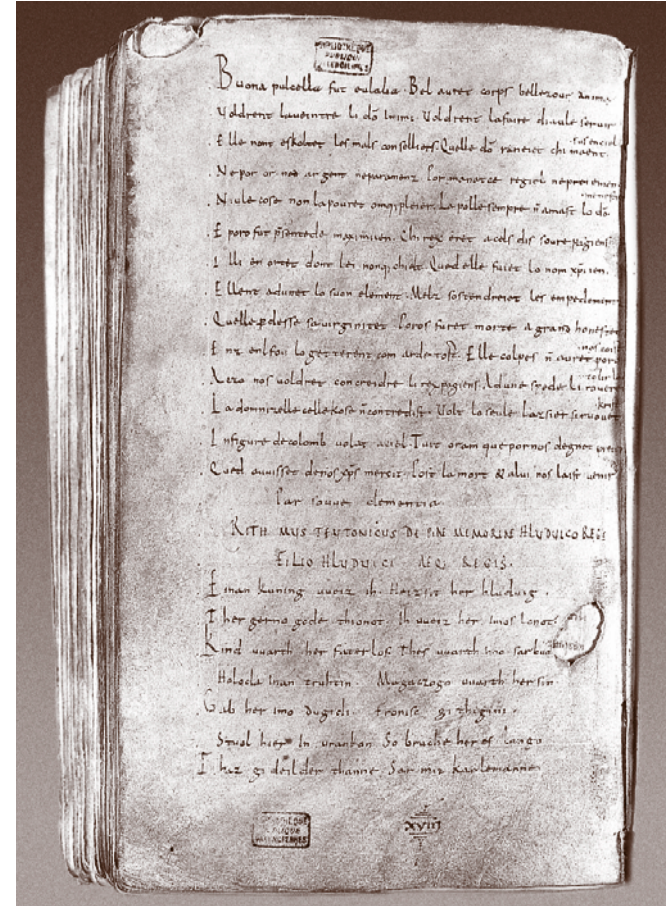 BIBLIOTHEQUE
PUBLIQUE
Buona pulcella fut eulalia. Bel auret corps bellezour anima
Voldrent laueintre li dō inimi. Voldrent lafaire diaule seruir
Elle nont eskoltet les mals conselliers. Quelle dō raneiet chi maent
sus en ciel
Ne por or ned argent neparamenz. Por manatce regiel ne preiemen
Niule cose non lapouret omq; pleier. La polle sempre n̄ amast lo dō
E poro fut p̄sentede maximiien. Chi rex eret a cels dis soure pagiens
Illi en ortet dont lei nonq; chielt. Qued elle fuiet lo nom xp̄iien.
Ellent adunet lo suon element. Melz sostendreiet les empedementz
Quelle ꝑdesse sa uirginitet. Poros furet morte a grand honestet
Enz enl fou lo getterent com arde tost. Elle colpes n̄ auret poro
nos coist
Aezo nos voldret concreidre li rex pagiens. Ad une spede li roueret
La domnizelle celle kose n̄ contredist. Volt lo seule lazsier si ruouet
In figure de colomb uolat a ciel. Tuit oram que por nos degnet preier
Qued auuisset de nos xp̄s mercit. Post la mort & a lui nos laist uenir
Par souue clementia.
RITHMUS TEUTONICUS DE PIAE MEMORIAE HLUDUICO REGE
FILIO HLUDUICI AEQ; REGIS.
Einan kuning uueiz ih. Heizsit her hluduig.
Ther gerno gode thionot. Ih uueiz her imos lonot
Kind uuarth her faterlos. Thes uuarth imo sar buoz
Holoda inan truhtin. Magaczogo uuarth her sin
Gab her imo dugidi. Fronisc githigini.
Stuol hier in urankon. So bruche her es lango
Thaz gideilder thanne. Sar mit karlemanne
BIBLIOTHEQUE
PUBLIQUE
XVIII